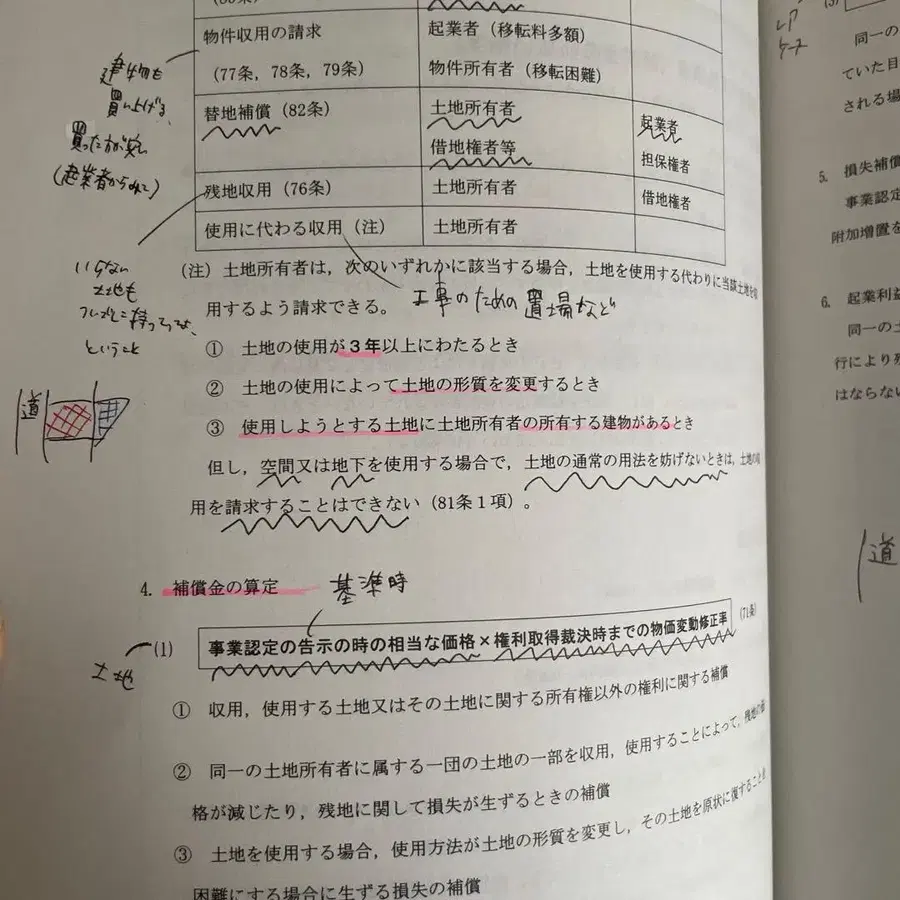 物件収用の請求 起業者（移転料多額）
（77条，78条，79条） 物件所有者（移転困難）
替地補償（82条） 土地所有者 起業者
借地権者等 担保権者
残地収用（76条） 土地所有者 借地権者
使用に代わる収用（注） 土地所有者
建物も
買い上げる、
買った方が安い
（起業者からみて）
いらない
土地も
持ってって、
ということ
道
（注）土地所有者は，次のいずれかに該当する場合，土地を使用する代わりに当該土地を収
用するよう請求できる。
工事のための置場など
① 土地の使用が３年以上にわたるとき
② 土地の使用によって土地の形質を変更するとき
③ 使用しようとする土地に土地所有者の所有する建物があるとき
但し，空間又は地下を使用する場合で，土地の通常の用法を妨げないときは，土地の
用を請求することはできない（81条１項）。
4. 補償金の算定
基準時
土地
(1) 事業認定の告示の時の相当な価格×権利取得裁決時までの物価変動修正率 （71条）
① 収用，使用する土地又はその土地に関する所有権以外の権利に関する補償
② 同一の土地所有者に属する一団の土地の一部を収用，使用することによって，残地の
格が減じたり，残地に関して損失が生ずるときの補償
③ 土地を使用する場合，使用方法が土地の形質を変更し，その土地を原状に復することを
困難にする場合に生ずる損失の補償
ケース
同一の
ていた目
される場
5. 損失補償
事業認定
附加増置を
6. 起業利益
同一の土
行により残
はならない
道